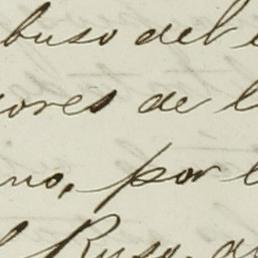 buso del
ores de l
no, por l
l Ruso,